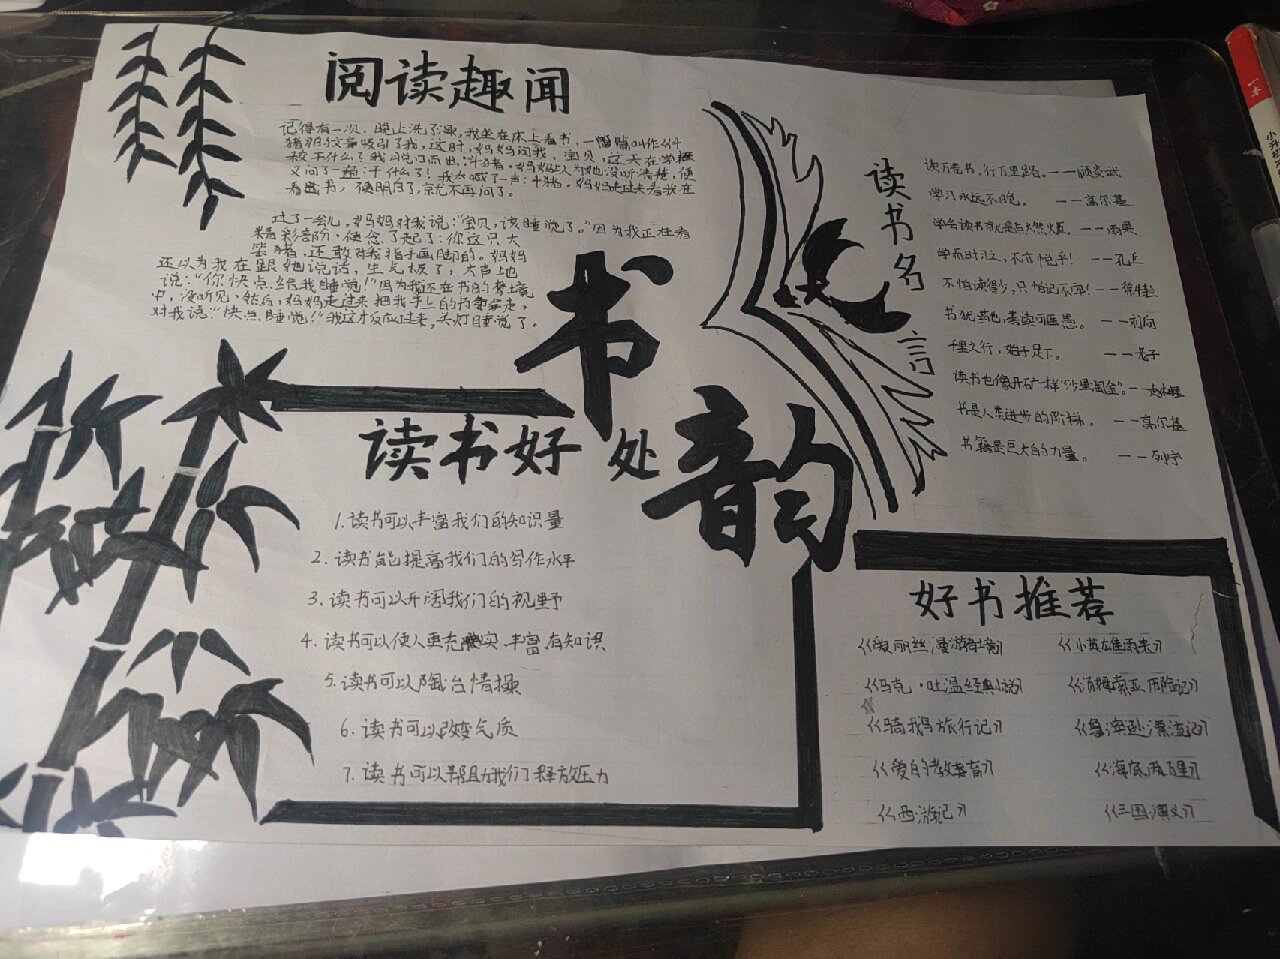 阅读趣闻
记得有一次，晚上洗了澡，我坐在床上看书，一篇叫作
猪的文章吸引了我，这时，妈妈问我，宝贝，这天在学校
又问了一遍：干什么了？我大喊了一声：牛猪。妈妈走过来看我在
看出书，便明白了，就不再问了。
过了一会儿，妈妈对我说：“宝贝，该睡觉了。”因为我正在看
精彩部分，便念了起了：你这只大
笨猪，还敢对我指手画脚的。妈妈
还以为我在跟她说话，生气极了，大声地
说：“你快点给我睡觉！”因为我还在书的考境
中，没听见，然后，妈妈走过来把我手上的书拿走，
对我说：“快点睡觉！”我这才反应过来，关灯睡觉了。
书韵
读书名言
读万卷书，行万里路。——顾炎武
学习永远不晚。——高尔基
学会读书就是点燃火真。——雨果
学而时习之，不亦悦乎！——孔丘
不怕读得少，只怕记不牢！——徐特立
书犹药也，善读可医愚。——刘向
千里之行，始于足下。——老子
读书也像开矿一样“沙里淘金”。——
书是人类进步的阶梯。——高尔基
书籍是巨大的力量。——列宁
读书好处
1.读书可以丰富我们的知识量
2.读书能提高我们的写作水平
3.读书可以开阔我们的视野
4.读书可以使人更充实、丰富有知识
5.读书可以陶冶情操
6.读书可以改变气质
7.读书可以帮助我们释放压力
好书推荐
《爱丽丝漫游奇境》 《小英雄雨来》
《马克·吐温经典小说》 《汤姆索亚历险记》
《骑鹅旅行记》 《鲁滨逊漂流记》
《爱的教育》 《海底两万里》
《西游记》 《三国演义》